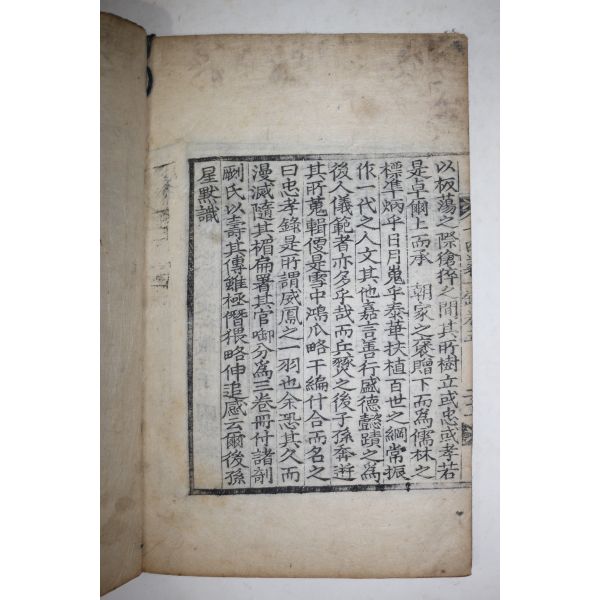 以板蕩之際倉猝之間其所樹立或忠或孝若
是卓爾上而承　朝家之褒贈下而爲儒林之
標準炳乎日月嵬乎泰華扶植百世之綱常振
作一代之人文其他嘉言善行盛德懿蹟之爲
後人儀範者亦多乎哉而兵燹之後子孫奔迸
其所蒐輯僾是雪中鴻爪略干編什合而名之
曰忠孝錄是所謂威鳳之一羽也余恐其久而
漫滅隨其楣扁署其官啣分爲三卷冊付諸剞
劂氏以壽其傳雖極僭猥略伸追感云爾後孫
星默識